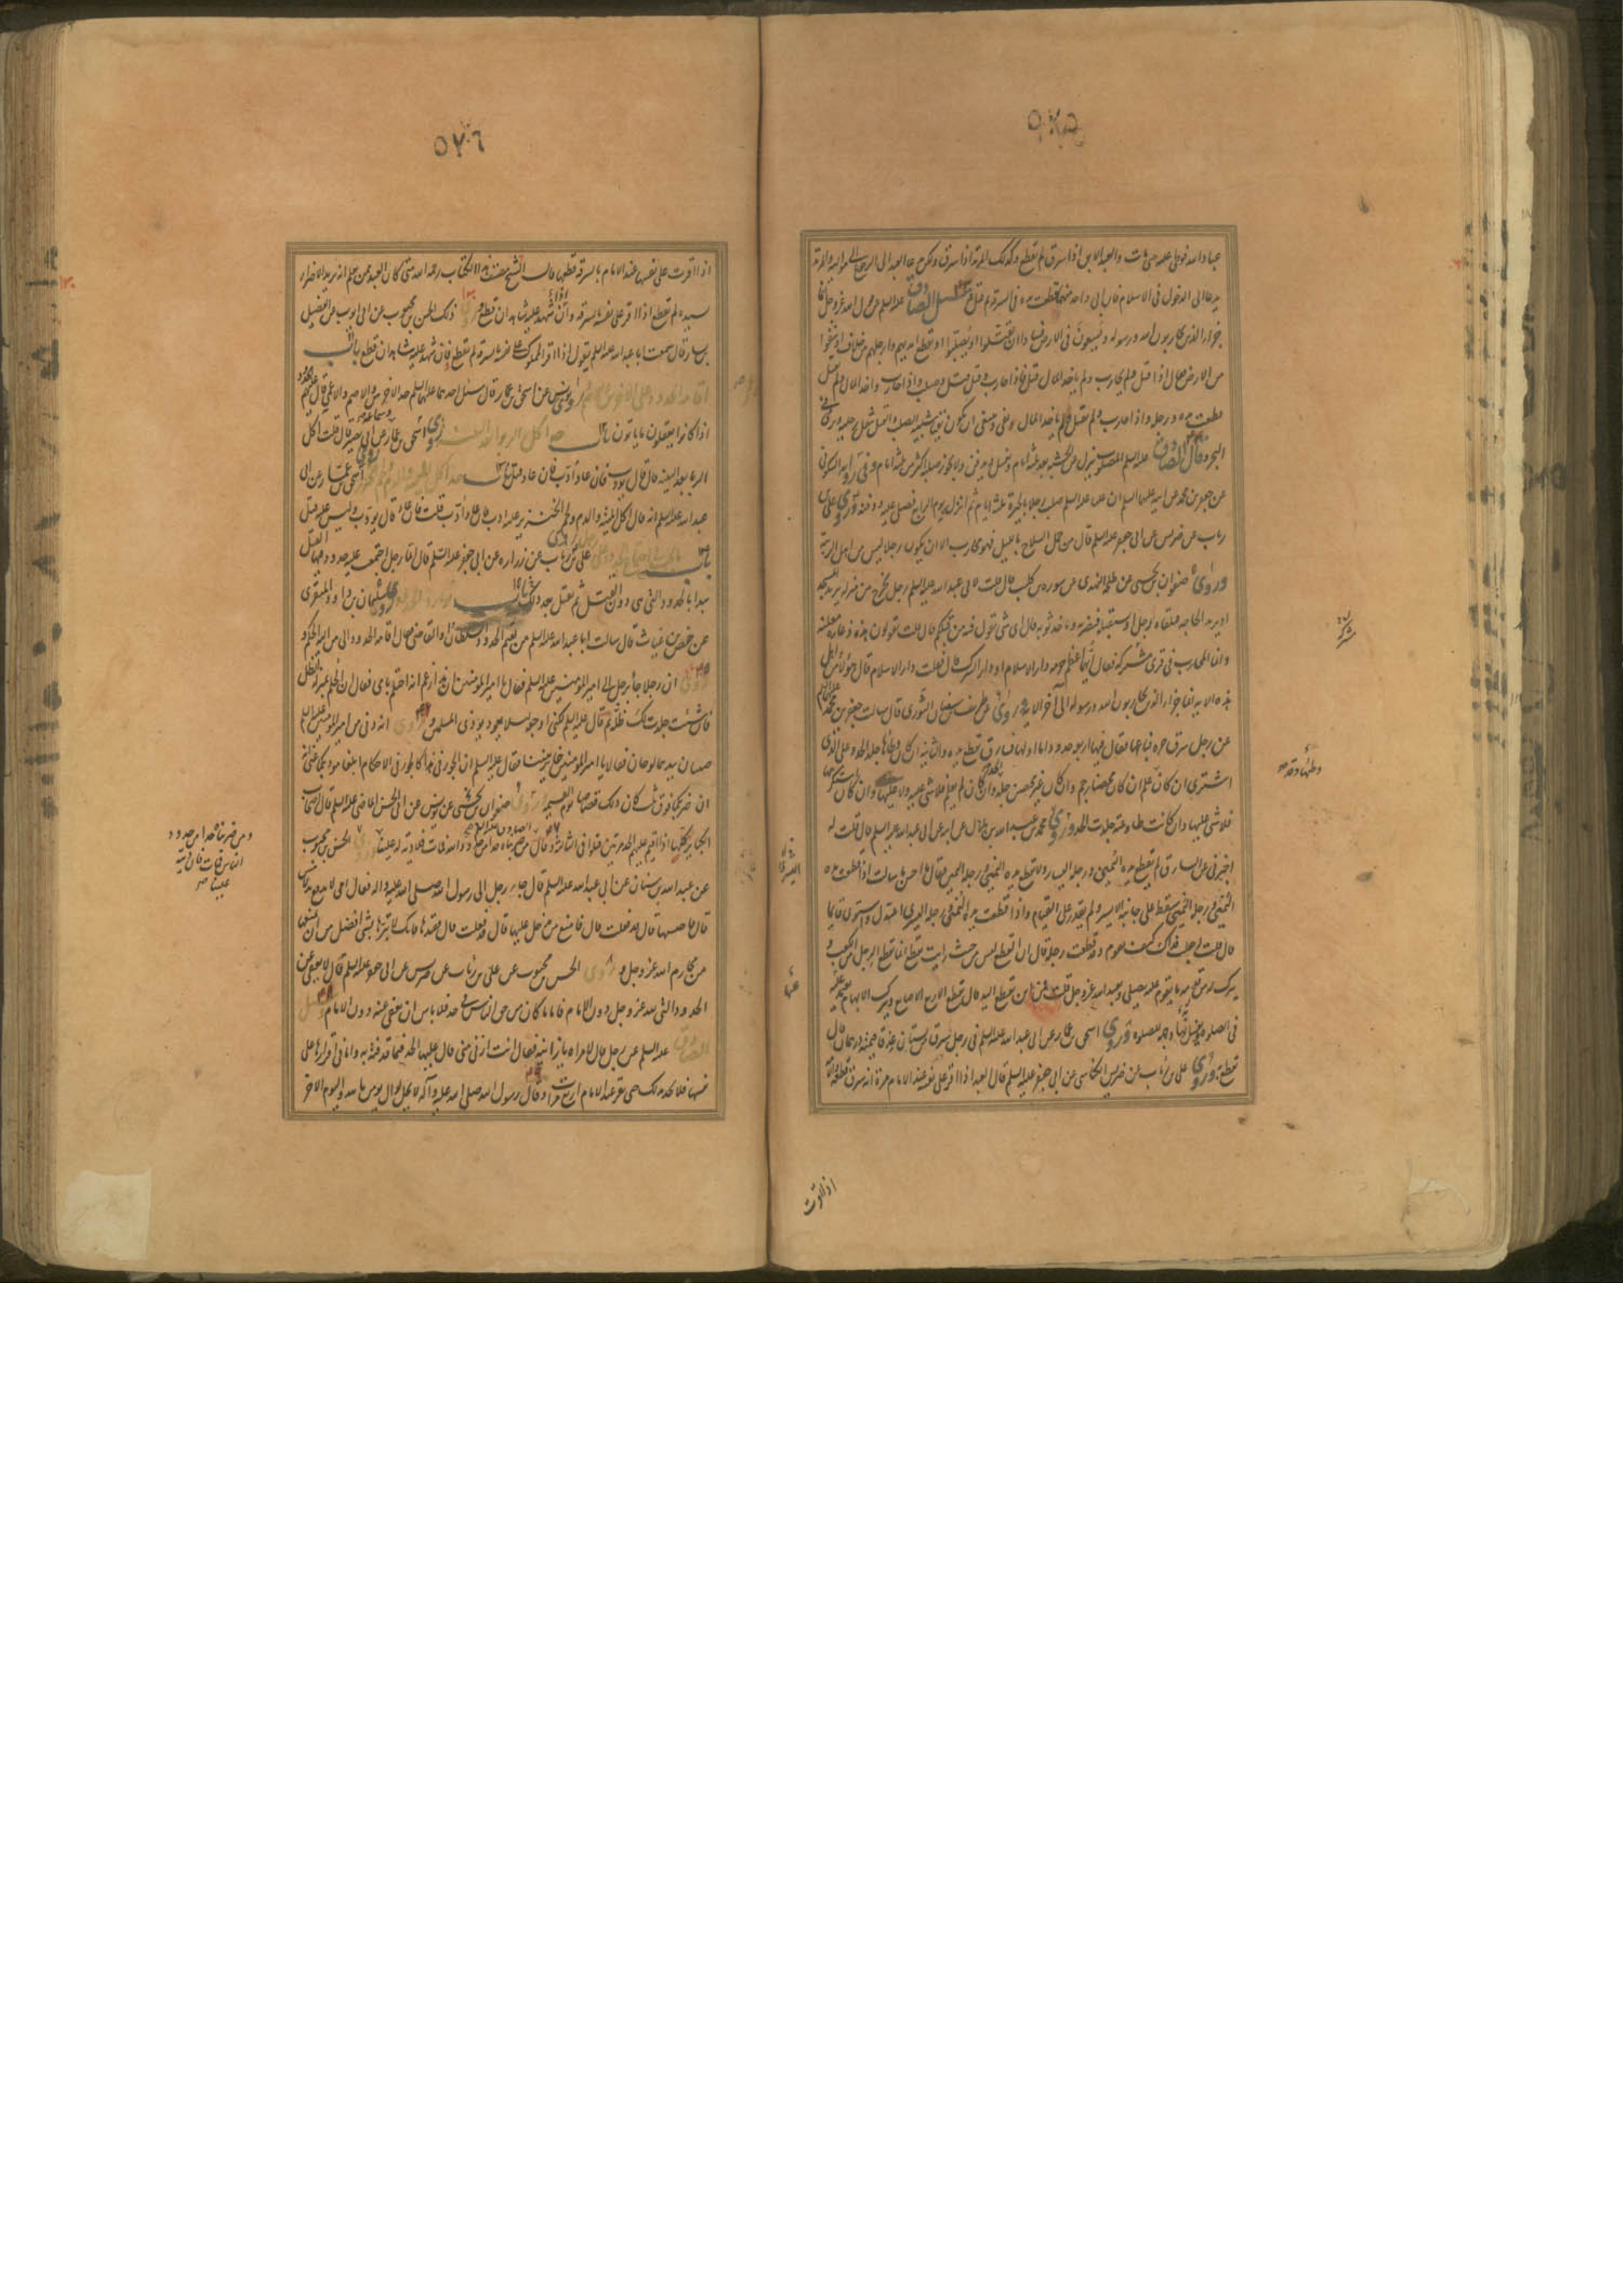 ٥٢٥
عباد الله فولى عليه حتى مات والعبد الابق اذا سرق لم يقطع وكذلك المرتد اذا سرق ولكن يدعا العبد الى الرجوع الى مواليه والمرتد
يدعا الى الدخول فى الاسلام فان ابى واحد منهما قطعت يده فى السرقة ثم قتل وسئل الصادق عليه السلم عن قول الله عز وجل انما
جزاء الذين يحاربون الله ورسوله ويسعون فى الارض فسادا ان يقتلوا او يصلبوا او تقطع ايديهم وارجلهم من خلاف او ينفوا
من الارض فقال اذا قتل ولم يحارب ولم ياخذ المال قتل فاذا حارب وقتل قتل وصلب واذا حارب واخذ المال ولم يقتل
قطعت يده ورجله واذا حارب ولم يقتل ولم ياخذ المال نفى وينبغى ان يكون نفيا شبيها بالصلب والقتل يثقل رجليه ويرمى فى
البحر وقال الصادق عليه السلم المصلوب ينزل عن الخشبة بعد ثلثة ايام ويغسل ويدفن ولا يجوز صلبه اكثر من ثلثة ايام وفى رواية السكونى
عن جعفر بن محمد عن ابيه عليهما السلم ان عليا عليه السلم صلب رجلا بالحيرة ثلثة ايام ثم انزله يوم الرابع فصلى عليه ودفنه وروى على بن
رئاب عن ضريس عن ابى جعفر عليه السلم قال من حمل السلاح بالليل فهو محارب الا ان يكون رجلا ليس من اهل الريبة
وروى صفوان بن يحيى عن طلحة النهدى عن سورة بن كليب قال قلت لابى عبد الله عليه السلم رجل يخرج من منزله يريد المسجد
او يريد الحاجة فيلقاه رجل او يستقفيه فيضربه وياخذ ثوبه قال اى شئ يقول فيه من قبلكم قال قلت يقولون هذه دغارة معلنة
وانما المحارب فى قرى مشركة فقال ايهما اعظم حرمة دار الاسلام او دار الشرك قال فقلت دار الاسلام قال هؤلاء من اهل
هذه الاية انما جزاء الذين يحاربون الله ورسوله الى آخر الاية وروى عن سفيان الثورى قال سالت جعفر بن محمد عليه السلم
عن رجل سرق حرة فباعها فقال فيها اربعة حدود اما اولها فسارق تقطع يده والثانية ان كان وطئها جلد الحد وعلى الذى
اشترى ان كان علم ان كان محصنا رجم وان كان غير محصن جلد الحد وان كان لم يعلم فلا شئ عليه وان كان استكرهها
فلا شئ عليها وان كانت طاوعته جلدت الحد وروى محمد بن عبد الله بن هلال عن ابيه عن ابى عبد الله عليه السلم قال قلت له
اخبرنى عن السارق لم تقطع يده اليمنى ورجله اليسرى ولا تقطع يده اليمنى ورجله اليمنى فقال ما احسن ما سالت اذا قطعت يده
اليمنى ورجله اليمنى سقط على جانبه الايسر ولم يقدر على القيام واذا قطعت يده اليمنى ورجله اليسرى اعتدل واستوى قائما
قال قلت له جعلت فداك كيف يقوم وقد قطعت رجله قال ان القطع ليس من حيث رايت تقطع انما تقطع الرجل من الكعب و
يترك له من قدمه ما يقوم عليه يصلى ويعبد الله عز وجل قلت له من اين تقطع اليد قال تقطع الاربع الاصابع ويترك الابهام يعتمد عليه
فى الصلوة ويغسل بها وجهه للصلوة وروى اسحق بن عمار عن ابى عبد الله عليه السلم فى رجل سرق من بستان عذقا قيمته درهمان قال
تقطع وروى على بن رئاب عن ضريس الكناسى عن ابى جعفر عليه السلم قال العبد اذا اقر على نفسه عند الامام مرة انه سرق قطعه والامة
وطئها وقد
عنها
اذا اقرت
٥٢٦
اذا اقرت على نفسها عند الامام بالسرقة قطعها قال الشيخ مصنف هذا الكتاب رحمه الله متى كان العبد ممن يعلم انه يريد الاضرار
بسيده لم يقطع اذا اقر على نفسه بالسرقة وان شهد عليه شاهدان قطع وروى ذلك الحسن بن محبوب عن ابى ايوب عن الفضيل
بن يسار قال سمعت ابا عبد الله عليه السلم يقول اذا اقر المملوك على نفسه بالسرقة لم يقطع فان شهد عليه شاهدان قطع باب
اقامة الحدود على الاخرس والاصم روى يونس عن اسحق بن عمار قال سئل احدهما عليهما السلم عن حد الاخرس والاصم والاعمى قال عليهم الحدود
اذا كانوا يعقلون ما ياتون باب حد اكل الربوا بعد البينة روى اسحق بن عمار وسماعة عن ابى بصير قال قلت اكل
الربا بعد البينة قال يؤدب فان عاد ادب فان عاد قتل باب حد اكل الميتة والدم ولحم الخنزير روى اسحق بن عمار عن ابى
عبد الله عليه السلم انه قال اكل الميتة والدم ولحم الخنزير عليه ادب فان عاد ادب قلت فان عاد قال يؤدب وليس عليه قتل
باب على بن رئاب عن زرارة عن ابى جعفر عليه السلم قال ايما رجل اجتمعت عليه حدود فيها القتل
يبدا بالحدود التى هى دون القتل ثم يقتل بعد ذلك باب روى سليمان بن داود المنقرى
عن حفص بن غياث قال سالت ابا عبد الله عليه السلم من يقيم الحدود السلطان او القاضى فقال اقامة الحدود الى من اليه الحكم
وروى ان رجلا جاء برجل الى امير المؤمنين عليه السلم فقال يا امير المؤمنين ان هذا زعم انه احتلم بامى فقال ان الحلم بمنزلة الظل
فان شئت جلدت لك ظله ثم قال عليه السلم لكنى اوجعه لئلا يعود يؤذى المسلمين وروى انه دنى من امير المؤمنين عليه السلم
صبيان بيدهما لوحان فقالا يا امير المؤمنين خاير بيننا فقال عليه السلم ان الجور فى هذا كالجور فى الاحكام ابلغا مؤدبكما عنى انه
ان ضربكما فوق ثلث كان ذلك قصاصا يوم القيمة وروى صفوان بن يحيى عن يونس عن ابى الحسن الماضى عليه السلم قال اصحاب
الكبائر كلها اذا اقيم عليهم الحد مرتين قتلوا فى الثالثة وقال الصادق عليه السلم من ضربناه حدا من حدود الله فمات فلا دية له علينا وروى الحسن بن محبوب
عن عبد الله بن سنان عن ابى عبد الله عليه السلم قال جاء رجل الى رسول الله صلى الله عليه واله فقال ان امى لا تدفع يد لامس
قال فاحبسها قال قد فعلت قال فامنع من يدخل عليها قال قد فعلت قال فقيدها فانك لا تبرها بشئ افضل من ان تمنعها
من محارم الله عز وجل وروى الحسن بن محبوب عن على بن رئاب عن ضريس عن ابى جعفر عليه السلم قال لا يعفى عن
الحدود التى لله عز وجل دون الامام فاما ما كان من حق الناس فى حد فلا باس ان يعفى عنه دون الامام وسئل
الصادق عليه السلم عن رجل قال لامراة يا زانية فقالت انت ازنى منى قال عليها الحد فيما قذفته به واما فى اقرارها على
نفسها فلا تحد حتى تقر بذلك عند الامام اربع مرات وقال رسول الله صلى الله عليه وآله لا يحل لوال يؤمن بالله واليوم الاخر
ومن ضربناه حدا من حدود
الناس فمات فان ديته
علينا صح